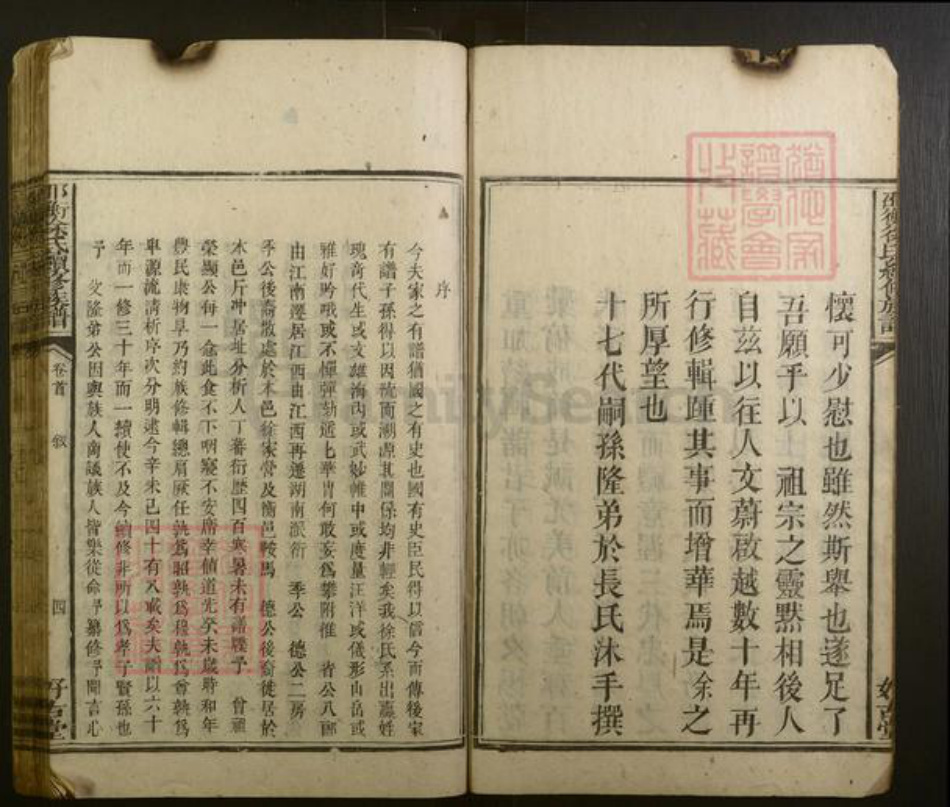 懷可少慰也雖然斯舉也遂足了
吾願乎以 祖宗之靈默相後人
自茲以往人文蔚啟越數十年再
行修輯踵其事而增華焉是余之
所厚望也
十七代嗣孫隆弟於長氏沐手撰
序
今夫家之有譜猶國之有史也國有史臣民得以信今而傳後家
有譜子孫得以因流而溯源其關係均非輕矣我徐氏系出嬴姓
瑰奇代生或文雄海內或武妙帷中或度量汪洋或儀形山岳或
雅好吟哦或不憚彈劾遥七華胄何敢妄為攀附惟 省公八郎
由江南遷居江西由江西再遷湖南派衍 季公 德公二房
季公後裔散處於本邑徐家營及衡邑鞍馬 德公後裔徙居於
本邑斤冲基址分析人丁蕃衍歷四百寒暑未有譜牒予 曾祖
榮顯公每一念此食不下咽寢不安席幸值道光癸未歲時和年
豊民康物阜乃約族修輯總肩厥任孰為昭孰為穆孰為尊孰為
卑源流清析序次分明逮今辛未已四十有八載矣夫譜以六十
年而一修三十年而一續使不及今續修非所以為孝子賢孫也
予 父隆弟公因與族人商議族人皆樂從命予纂修予聞言心
邵衡徐氏續修族譜
卷首
敘
四
好古堂